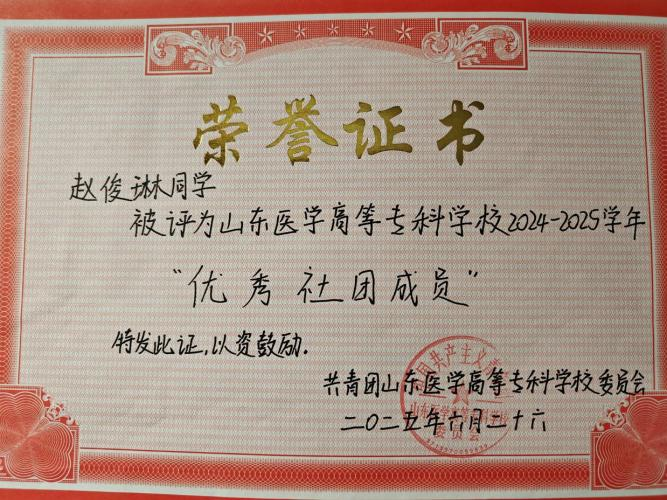 荣誉证书
赵俊琳同学
被评为山东医学高等专科学校2024-2025学年
"优秀社团成员"
特发此证,以资鼓励.
共青团山东医学高等专科学校委员会
二〇二五年六月二十六